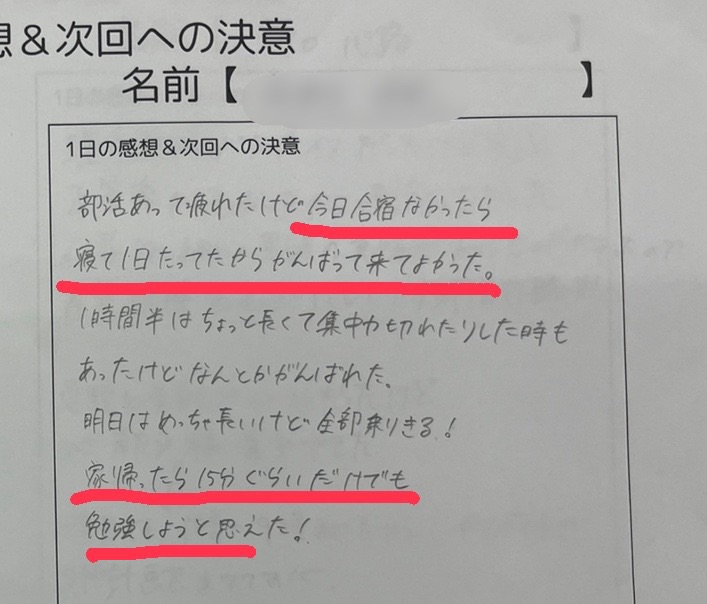 想&次回への決意
名前【 】
1日の感想&次回への決意
部活あって疲れたけど今日合宿なかったら
寝て1日たってたからがんばって来てよかった。
1時間半はちょっと長くて集中力切れたりした時も
あったけどなんとかがんばれた。
明日はめっちゃ長いけど全部乗りきる!
家帰ったら15分ぐらいだけでも
勉強しようと思えた!